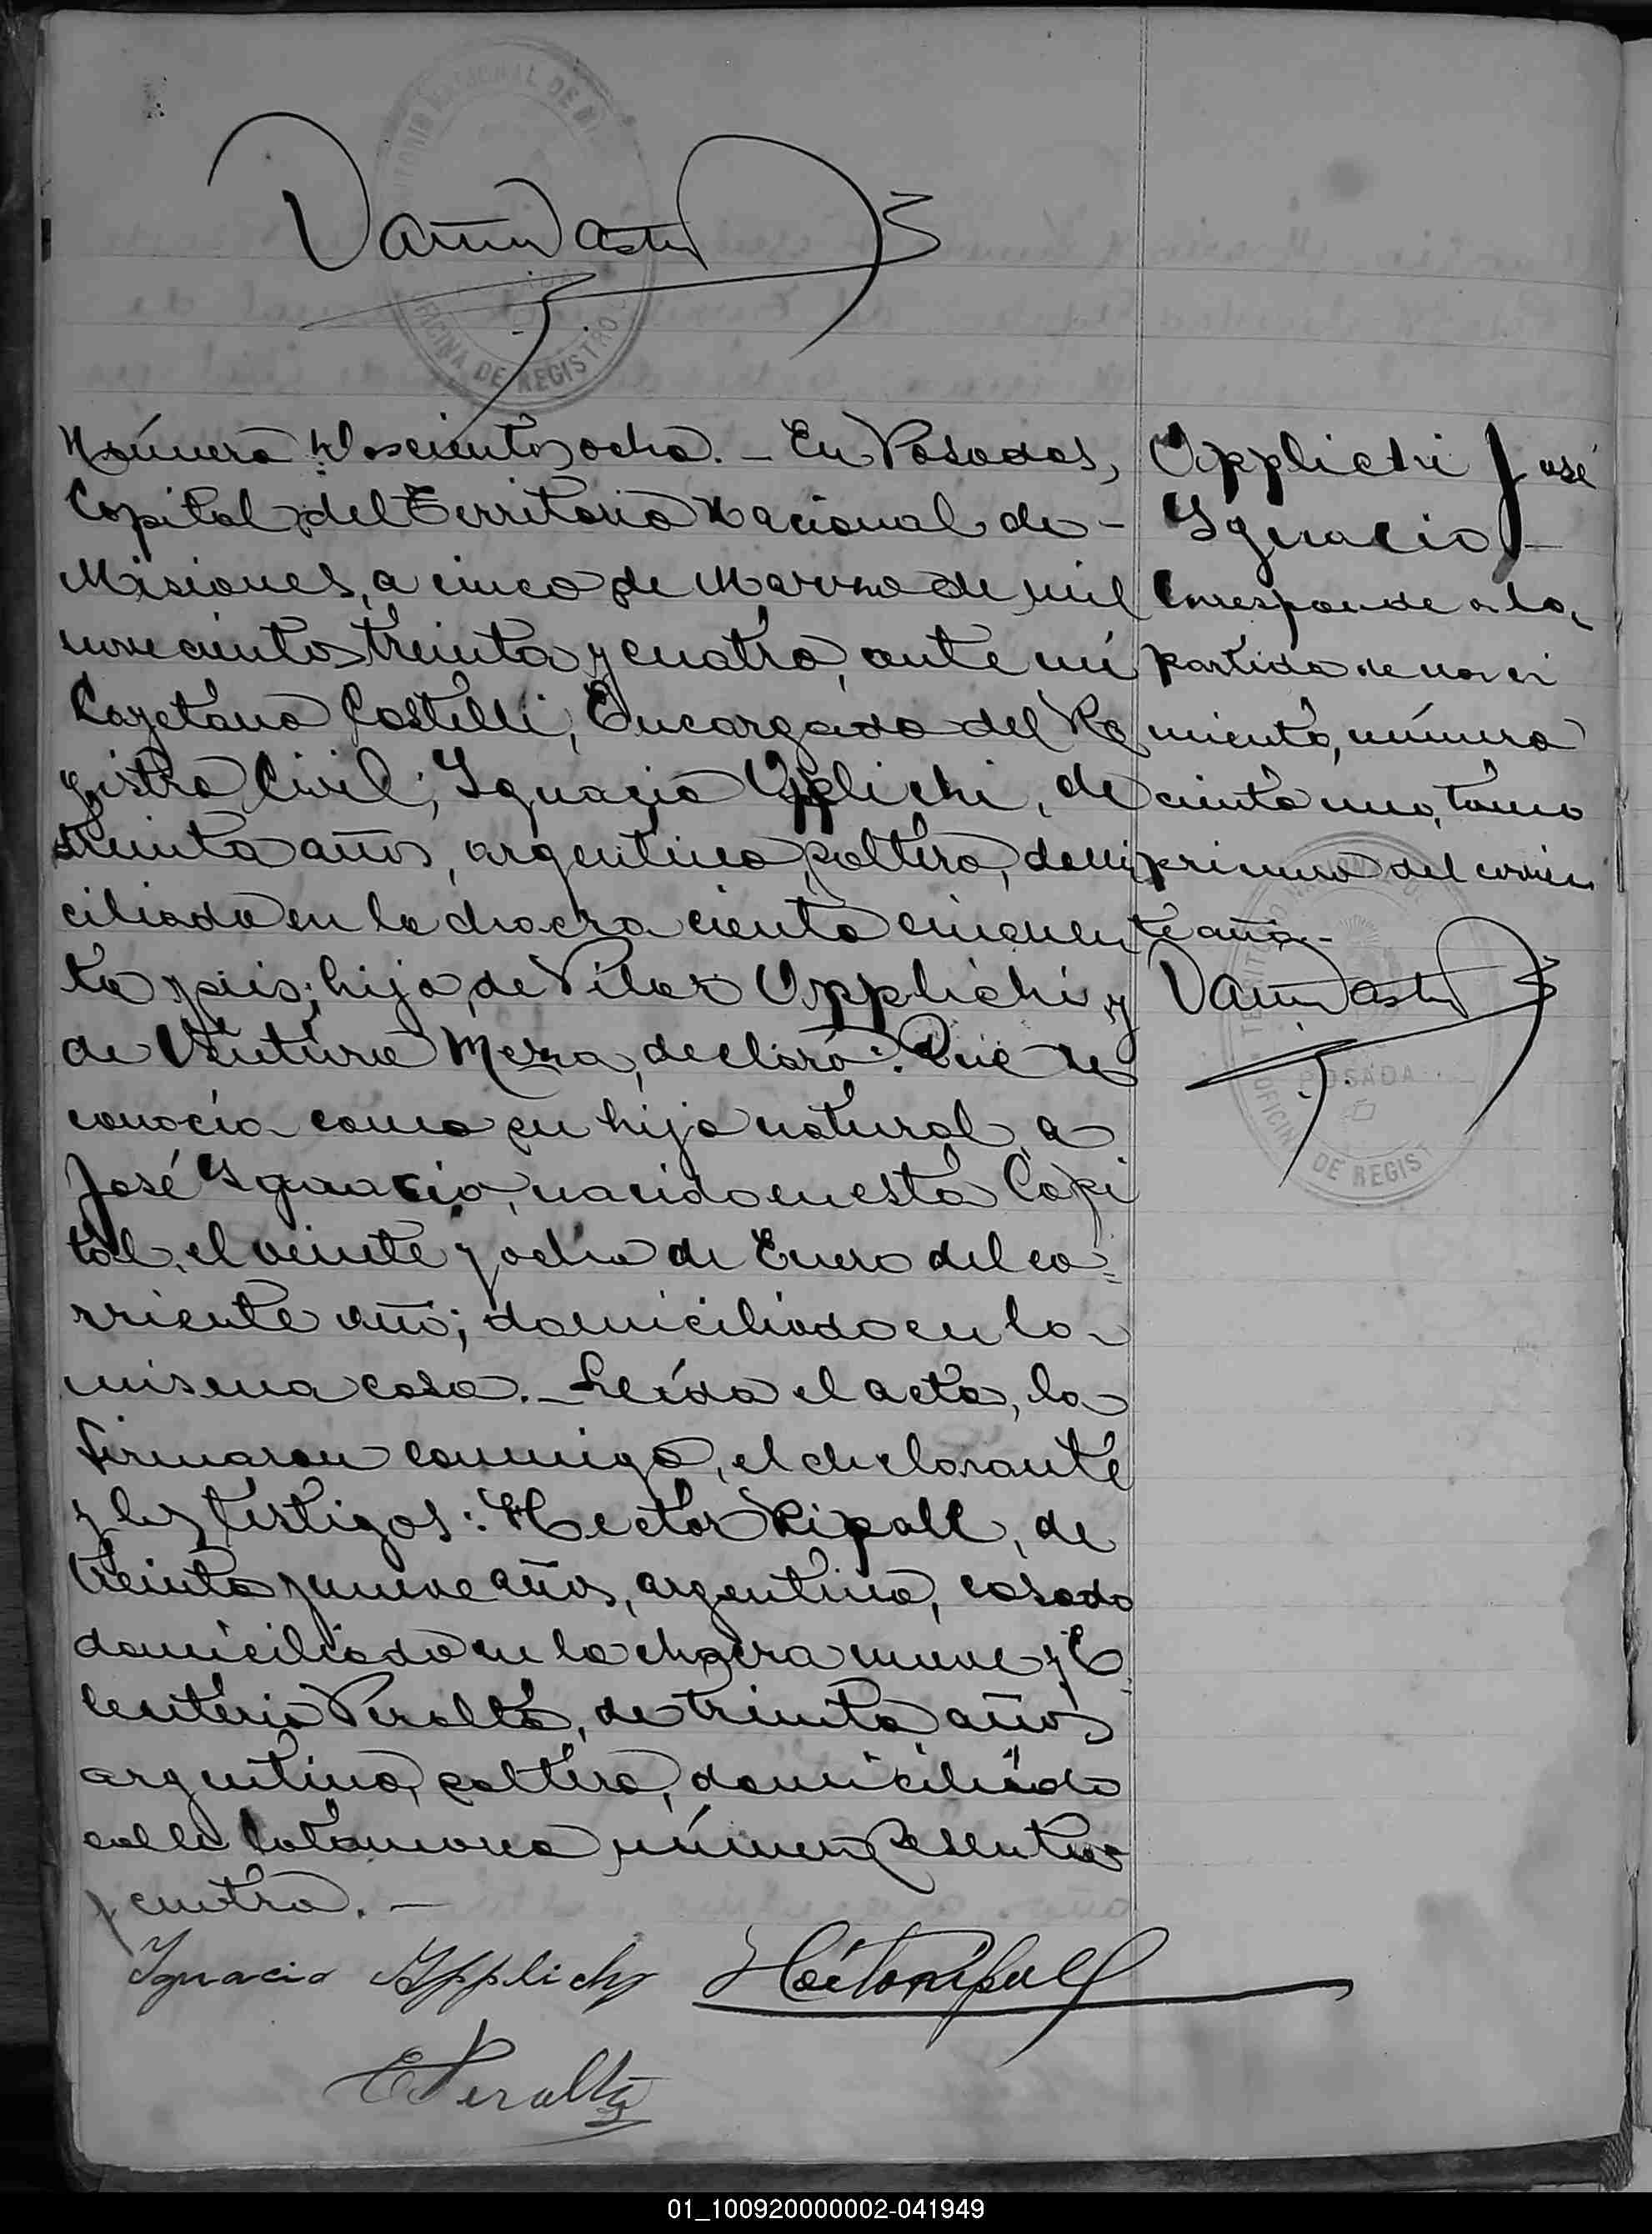 Número Doscientos ocho. - En Posadas,
Capital del Territorio Nacional de -
Misiones, a cinco de Marzo de mil
novecientos treinta y cuatro, ante mí
Cayetano Castelli, Encargado del Re
gistro Civil; Ignacio Opplichi, de
treinta años, argentino, soltero, domi
ciliado en la chacra ciento cincuen
ta y seis; hijo de Pilar Opplichi y
de Ventura Meza, declaró: Que re
conocía como su hijo natural a
José Ignacio, nacido en esta Capi
tal, el veinte y ocho de Enero del co=
rriente año; domiciliado en la
misma casa. - Leída el acta, la
firmaron conmigo, el declarante
y los testigos: Hector Ripoll, de
treinta y nueve años, argentino, casado
domiciliado en la chacra nueve y E
leuterio Peralta, de treinta años
argentino, soltero, domiciliado
calle Catamarca número sesenta
y cuatro. -
Ignacio Opplichi
Hector Ripoll
E Peralta
Opplichi José
Ignacio -
Corresponde a la
partida de naci
miento, número
ciento uno, tomo
primero del corrien
te año. -
OFICINA DE REGISTRO
POSADA
OFICINA DE REGIST
01_100920000002-041949